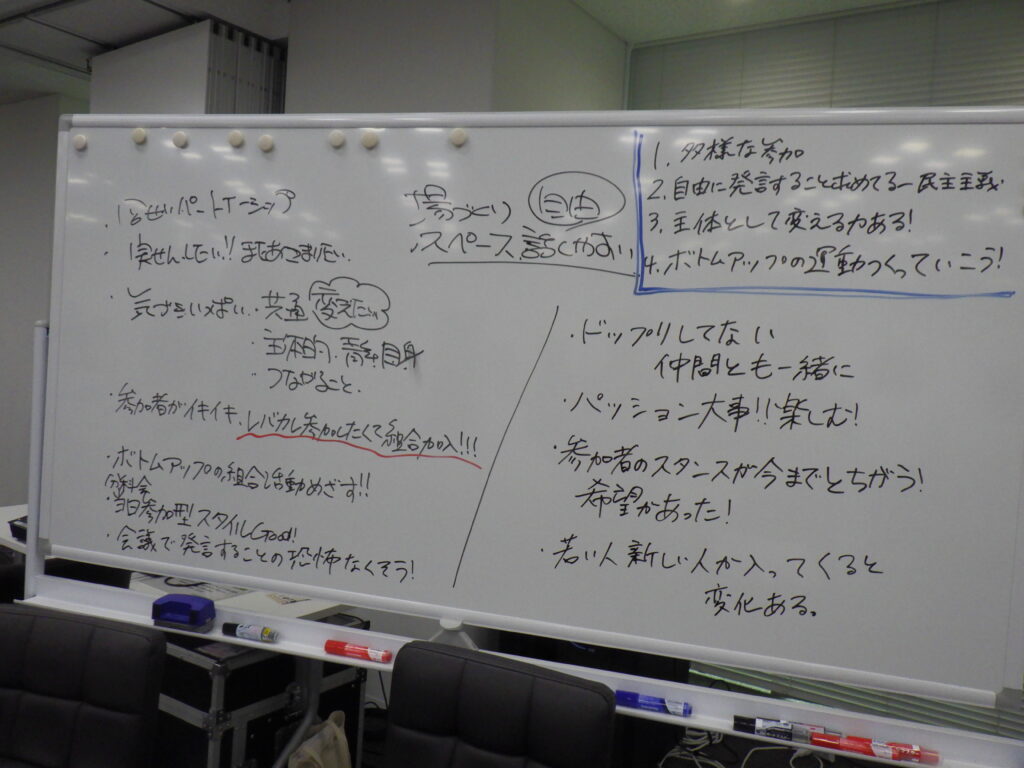 ・パートナーシップ
・実せんしたい!! またあつまりたい
・気づきいっぱい・共通 変えたい
・主体的、青年自身
・つながること、
・参加者がイキイキ、レバカレ参加したくて組合加入!!!
・ボトムアップの組合活動めざす!!
分科会
・当日参加型スタイルGood!
・会議で発言することの恐怖なくそう!
場づくり 自由
スペース 話しやすい
1、多様な参加
2、自由に発言すること求めてるー民主主義
3、主体として変える力ある!
4、ボトムアップの運動つくっていこう!
・ドップリしてない
仲間とも一緒に
・パッション大事!! 楽しむ!
・参加者のスタンスが今までとちがう!
希望があった!
・若い人 新しい人が入ってくると
変化ある。